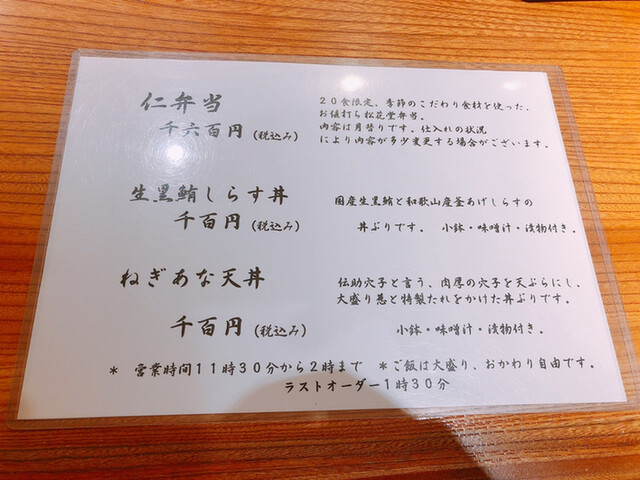 仁弁当
千六百円(税込み)
２０食限定、季節のこだわり食材を使った、
お値打ち松花堂弁当。
内容は月替りです。仕入れの状況
により内容が多少変更する場合がございます。
生黒鮪しらす丼
千百円(税込み)
国産生黒鮪と和歌山産釜あげしらすの
丼ぶりです。 小鉢・味噌汁・漬物付き。
ねぎあな天丼
千百円(税込み)
伝助穴子と言う、肉厚の穴子を天ぷらにし、
大盛り葱と特製たれをかけた丼ぶりです。
小鉢・味噌汁・漬物付き。
＊ 営業時間１１時３０分から２時まで ＊ご飯は大盛り、おかわり自由です。
ラストオーダー１時３０分